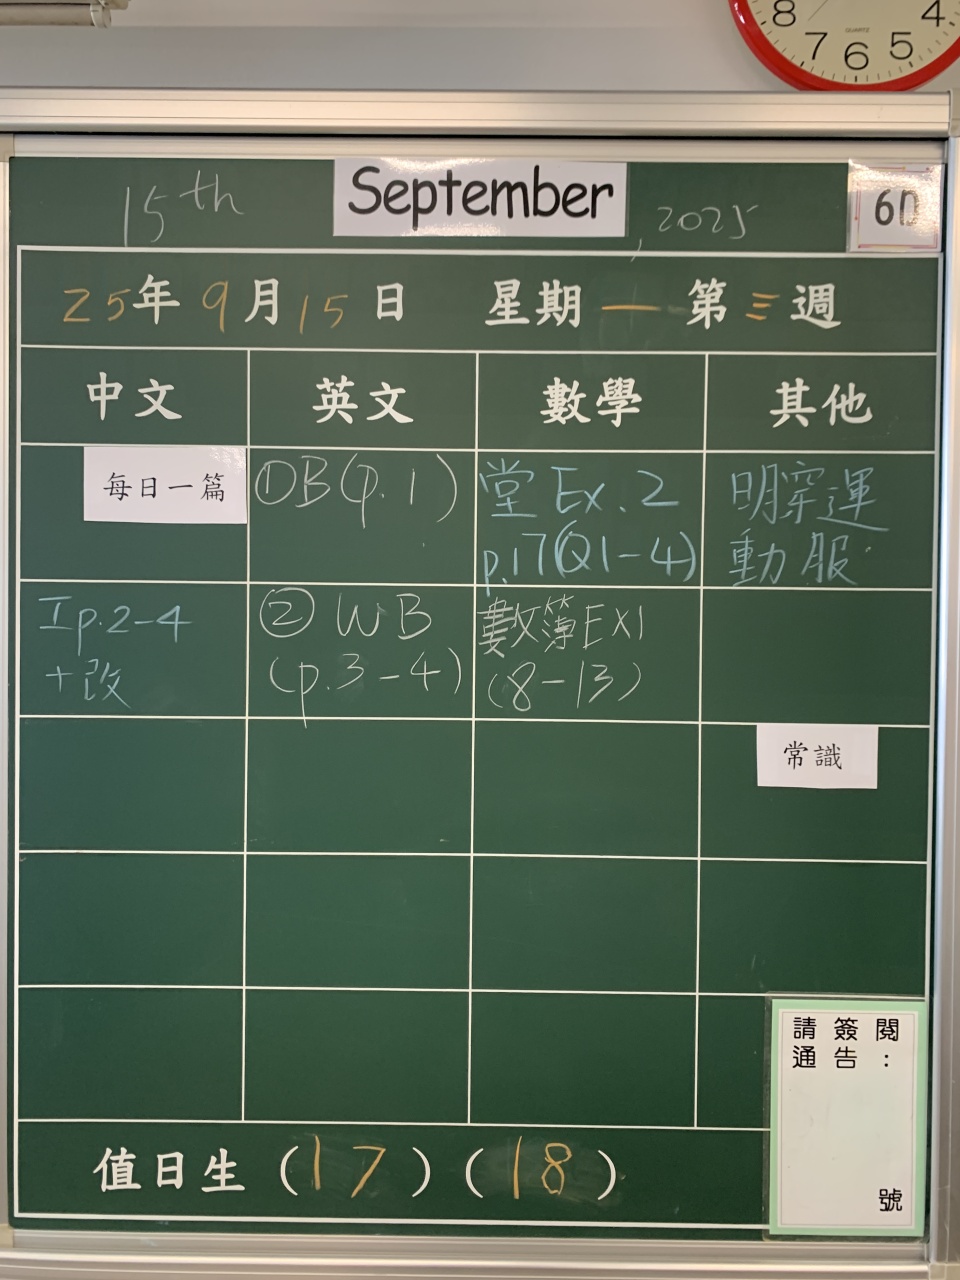 8 4
7 6 5
QUARTZ
15th September, 2025 6D
25年9月15日 星期一 第三週
中文 英文 數學 其他
每日一篇
①DB(p.1)
堂Ex.2
p.17(Q1-4)
明穿運
動服
工p.2-4
+改
② WB
(p.3-4)
數簿EX1
(8-13)
常識
請簽閱
通告：
號
值日生(17)(18)